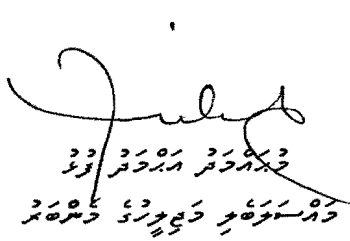 މުޙައްމަދު އަޙްމަދު ފުޅު
މައްސަލަބެލި މަޖިލީހުގެ މެންބަރު